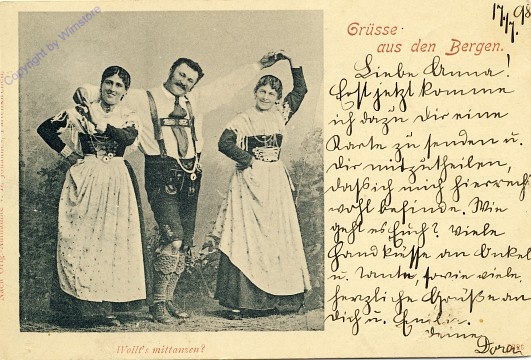 17/7. 98
Grüsse
aus den Bergen.
Liebe Anna!
Erst jetzt komme
ich dazu Dir eine
Karte zu senden u.
Dir mitzutheilen,
daß ich mich hier recht
wohl befinde. Wie
geht es Euch? Viele
Handküsse an Onkel
u. Tante, sowie viele
herzliche Grüße an
Dich u. Emilie.
Deine
Dora
Wollt's mittanzen?
copyright by Winstore